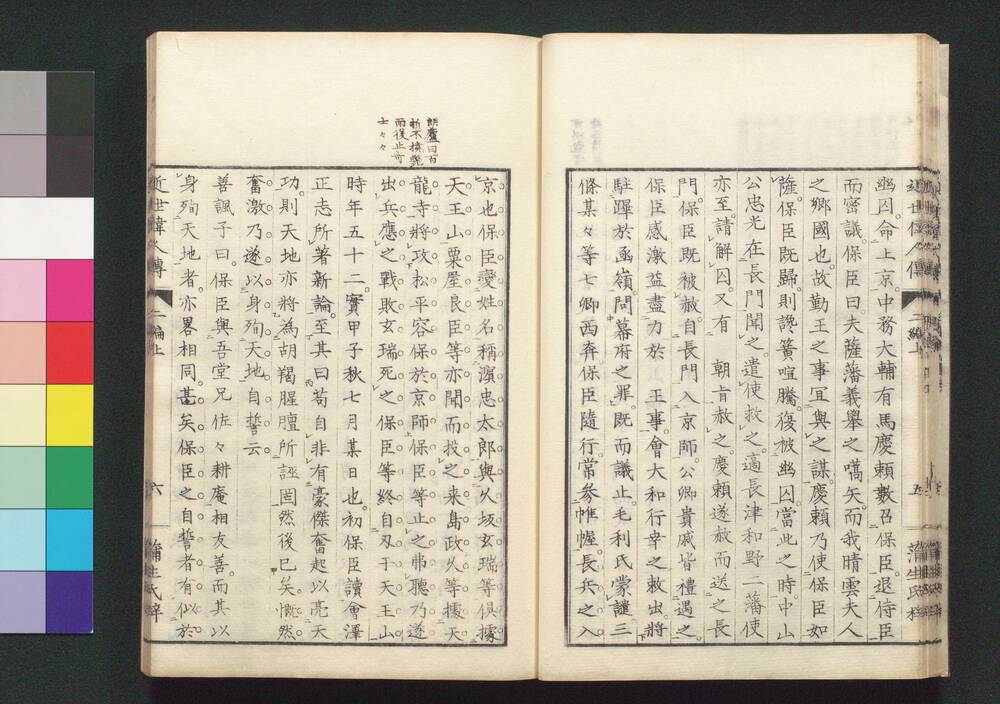 幽囚命上京中務大輔有馬慶頼數召保臣退侍臣
而密議保臣曰夫薩藩義舉之嚆矢而我晴雲夫人
之郷國也故勤王之事冝與之謀慶頼乃使保臣如
薩保臣既歸則讒簧喧騰復被幽囚當此之時中山
公忠光在長門聞之遣使救之適長津和野二藩使
亦至請解囚又有　朝旨赦之慶頼遂赦而送之長
門保臣既被赦自長門入京師公卿貴戚皆禮遇之
保臣感激益盡力於　王事會大和行幸之敕出將
駐蹕於函嶺問幕府之罪既而議止毛利氏蒙譴三
條某々等七卿西奔保臣隨行常參帷幄長兵之入
近世偉人傳
二編上
五
蒲生氏梓
朗廬曰百
折不撓斃
而後止奇
士々々
京也保臣變姓名稱濵忠太郎與久坂玄瑞等俱據
天王山粟屋良臣等亦聞而投之来島政久等據天
龍寺將攻松平容保於京師保臣等止之弗聽乃遂
出兵應之戰敗玄瑞死之保臣等終自刃于天王山
時年五十二實甲子秋七月某日也初保臣讀會澤
正志所著新論至其曰苟自非有豪傑奮起以亮天
功則天地亦將為胡羯腥膻所誣罔然後已矣慨然
奮激乃遂以身殉天地自誓云
善諷子曰保臣與吾堂兄佐々耕庵相友善而其以
身殉天地者亦畧相同甚矣保臣之自誓者有似於
近世偉人傳
二編上
六
蒲生氏梓